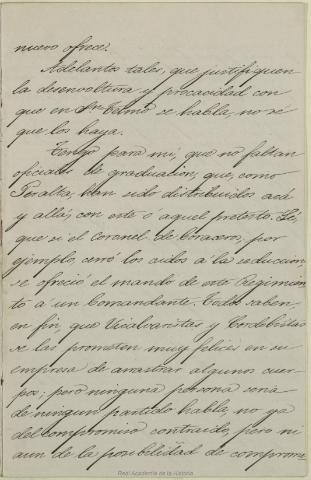 nuevo ofrece?
Adelantos tales, que justifiquen
la desenvoltura y procacidad con
que en Sn Telmo se habla, no sé
que los haya.
Tengo para mí, que no faltan
oficiales de graduacion, que, como
Peralta, han sido distribuidos acá
y allá, con este o aquel pretesto. Sé,
que si el Coronel de Coraceros, por
ejemplo, cerró los oidos á la seduccion,
se ofreció el mando de este Regimien
to á un Comandante. Todos saben,
en fin, que Vicalvaristas y Cordobistas
se las prometen muy felices en su
empresa de arrastrar algunos cuer-
pos; pero ninguna persona seria
de ningun partido habla, no ya
del compromiso contraido, pero ni
aun de la posibilidad de comprome
Real Academia de la Historia